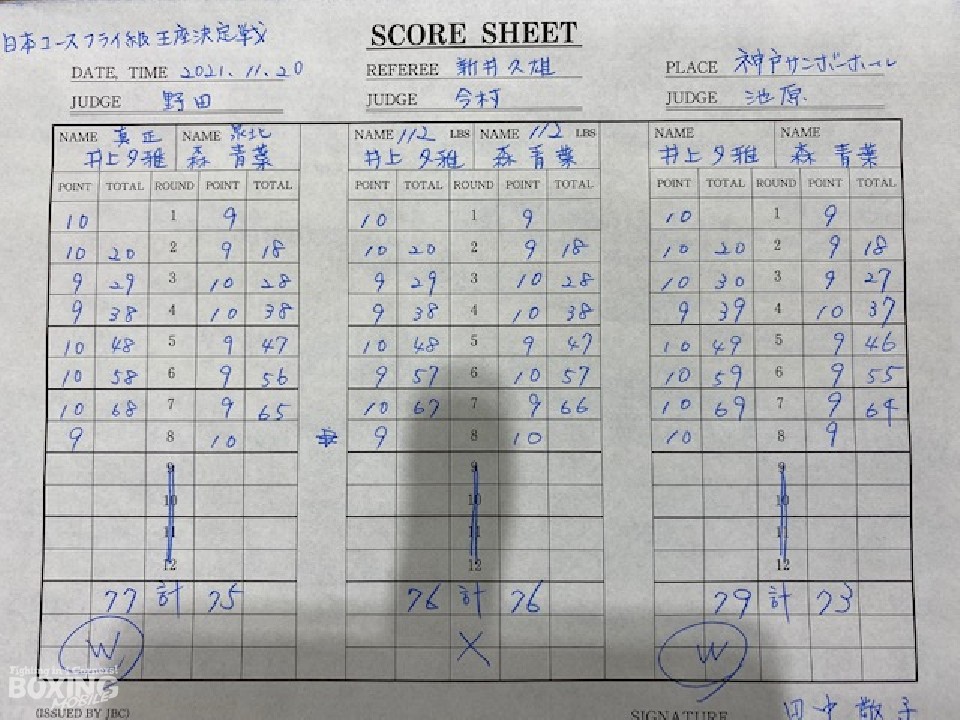 SCORE SHEET
日本ユースフライ級王座決定戦
DATE, TIME 2021.11.20 REFEREE 新井久雄 PLACE 神戸サンボーホール
JUDGE 野田 JUDGE 今村 JUDGE 池原
NAME 真正 NAME 泉北 NAME 112 LBS NAME 112 LBS NAME NAME
井上夕雅 森青葉 井上夕雅 森青葉 井上夕雅 森青葉
POINT TOTAL ROUND POINT TOTAL POINT TOTAL ROUND POINT TOTAL POINT TOTAL ROUND POINT TOTAL
10 1 9 10 1 9 10 1 9
10 20 2 9 18 10 20 2 9 18 10 20 2 9 18
9 29 3 10 28 9 29 3 10 28 10 30 3 9 27
9 38 4 10 38 9 38 4 10 38 9 39 4 10 37
10 48 5 9 47 10 48 5 9 47 10 49 5 9 46
10 58 6 9 56 9 57 6 10 57 10 59 6 9 55
10 68 7 9 65 10 67 7 9 66 10 69 7 9 64
9 8 10 9 8 10 10 8 9
9 9 9
10 10 10
11 11 11
12 12 12
77 計 75 76 計 76 79 計 73
W X W
Fighting in a Carnival
BOXING MOBILE
(ISSUED BY JBC) SIGNATURE 田中敬子